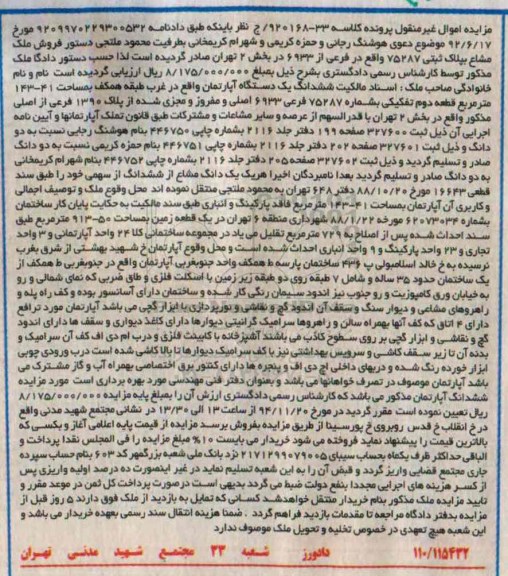 مزایده اموال غیرمنقول پرونده کلاسه ۳۳-۹۲۰۱۶۸/ ج نظر باینکه طبق دادنامه ۹۲۰۹۹۷۰۲۲۹۳۰۰۵۳۲ مورخ
۹۲/۶/۱۷ موضوع دعوی هوشنگ رجانی و حمزه کریمی و شهرام کریمخانی بطرفیت محمود ملتجی دستور فروش ملک
مشاع بپلاک ثبتی ۷۵۲۸۷ واقع در فرعی از ۶۹۳۳ در بخش ۲ تهران صادر گردیده است لذا حسب دستور دادگاه ملک
مذکور توسط کارشناس رسمی دادگستری بشرح ذیل بمبلغ ۸/۱۷۵/۰۰۰/۰۰۰ ریال ارزیابی گردیده است نام و نام
خانوادگی صاحب ملک : اسناد مالکیت ششدانگ یک دستگاه آپارتمان واقع در غرب طبقه همکف بمساحت ۱۴۳-۴۱
مترمربع قطعه دوم تفکیکی بشماره ۷۵۲۸۷ فرعی ۶۹۳۳ اصلی و مفروز و مجزی شده از پلاک ۱۳۹۰ فرعی از اصلی
مذکور واقع در بخش ۲ تهران با قدرالسهم از عرصه و سایر مشاعات و مشترکات طبق قانون تملک آپارتمانها و آیین نامه
اجرایی آن ذیل ثبت ۳۲۷۶۰۰ صفحه ۱۹۹ دفتر جلد ۲۱۱۶ بشماره چاپی ۴۴۶۷۵۰ بنام هوشنگ رجایی نسبت به دو
دانگ و ذیل ثبت ۳۲۷۶۰۱ صفحه ۲۰۲ دفتر جلد ۲۱۱۶ بشماره چاپی ۴۴۶۷۵۱ بنام حمزه کریمی نسبت به دو دانگ
صادر و تسلیم گردید و ذیل ثبت ۳۲۷۶۰۲ صفحه ۲۰۵ دفتر جلد ۲۱۱۶ بشماره چاپی ۴۴۶۷۵۲ بنام شهرام کریمخانی
به دو دانگ صادر و تسلیم گردید بعدا نامبردگان اخیرا هریک یک دانگ مشاع از ششدانگ از سهمی خود را طبق سند
قطعی ۱۶۶۴۳ مورخ ۸۸/۱۰/۲۰ دفتر ۶۴۸ تهران به محمود ملتجی منتقل نموده اند محل وقوع ملک و توصیف اجمالی
و کاربری آن آپارتمان بمساحت ۱۴۳-۴۱ مترمربع فاقد پارکینگ و انباری طبق سند مالکیت به حکایت پایان کار ساختمان
بشماره ۶۲۰۷۳۰۳۴ مورخه ۸۸/۱/۲۲ شهرداری منطقه ۶ تهران در یک قطعه زمین بمساحت ۵۰-۹۱۳ مترمربع طبق
سند احداث شده پس از اصلاح به ۷۲۹ مترمربع تقلیل می یاد در مجموعه ساختمانی کلا ۲۴ واحد آپارتمانی و ۳ واحد
تجاری و ۲۳ واحد پارکینگ و ۹ واحد انباری احداث شده است و محل وقوع آپارتمان خ شهید بهشتی از شرق بغرب
نرسیده به خ خالد اسلامبولی پ ۴۳۶ ساختمان پارسه ط همکف واحد جنوبغربی آپارتمان واقع در جنوبغربی ط همکف از
یک ساختمان حدود ۳۵ ساله و شامل ۷ طبقه روی دو طبقه زیر زمین با اسکلت فلزی و طاق ضربی که نمای شمالی و رو
به خیابان ورق کامپوزیت و رو جنوب نیز اندود سیمان رنگی کار شده و ساختمان دارای آسانسور بوده و کف راه پله و
راهروهای مشاعی و دیوار سنگ و سقف آن اندود گچ و نقاشی و نورپردازی با ابزار گچی می باشد آپارتمان مورد ترافع
دارای ۴ اتاق که کف آنها بهمراه سالن و راهروها سرامیک گرانیتی دیوارها دارای کاغذ دیواری و سقف ها دارای اندود
گچ و نقاشی و ابزار گچی بر روی سطوح کاذب می باشند آشپزخانه با کابینت فلزی و درب ام دی اف کف آن سرامیک و
بدنه آن تا زیر سقف کاشی و سرویس بهداشتی نیز با کف سرامیک دیوارها تا بالا کاشی شده است درب ورودی چوبی
ابزار خورده رنگ شده و دربهای داخلی اچ دی اف و پنجره ها دارای کنتور برق اختصاصی بهمراه آب و گاز مشترک می
باشد آپارتمان موصوف در تصرف خواهانها می باشد و بعنوان دفتر فنی مهندسی مورد بهره برداری است مورد مزایده
ششدانگ آپارتمان مذکور می باشد که کارشناس رسمی دادگستری ارزش آن را بمبلغ پایه مزایده ۸/۱۷۵/۰۰۰/۰۰۰
ریال تعیین نموده است مقرر گردید در مورخ ۹۴/۱۱/۲۰ از ساعت ۱۳ الی ۱۳/۳۰ در نشانی مجتمع شهید مدنی واقع
در خ انقلاب خ قدس روبروی خ پورسینا از طریق مزایده بفروش برسد مزایده از قیمت پایه اعلامی آغاز و بکسی که
بالاترین قیمت را پیشنهاد نماید فروخته می شود خریدار می بایست ۱۰% مبلغ مزایده را فی المجلس نقدا پرداخت و
الباقی حداکثر ظرف یکماه بحساب سیبای ۲۱۷۱۲۹۹۰۷۹۰۰۵ نزد بانک ملی شعبه بزرگمهر کد ۶۰۳ بنام حساب سپرده
جاری مجتمع قضایی واریز گردد و قبض آن را به این شعبه تسلیم نماید در غیر اینصورت ده درصد اولیه واریزی پس
از کسر هزینه های اجرایی مجددا بنفع دولت ضبط می گردد بدیهی است درصورت پرداخت کل ثمن در موعد مقرر و
تایید مزایده ملک مذکور بنام خریدار منتقل خواهدشد کسانی که تمایل به بازدید از ملک فوق دارند ۵ روز قبل از
مزایده بدفتر دادگاه مراجعه تا مقدمات بازدید فراهم گردد . ضمنا هزینه انتقال سند رسمی بعهده خریدار می باشد و
این شعبه هیچ تعهدی در خصوص تخلیه و تحویل ملک موصوف ندارد
۱۱۰/۱۱۵۴۳۲ دادورز شعبه ۳۳ مجتمع شهید مدنی تهران